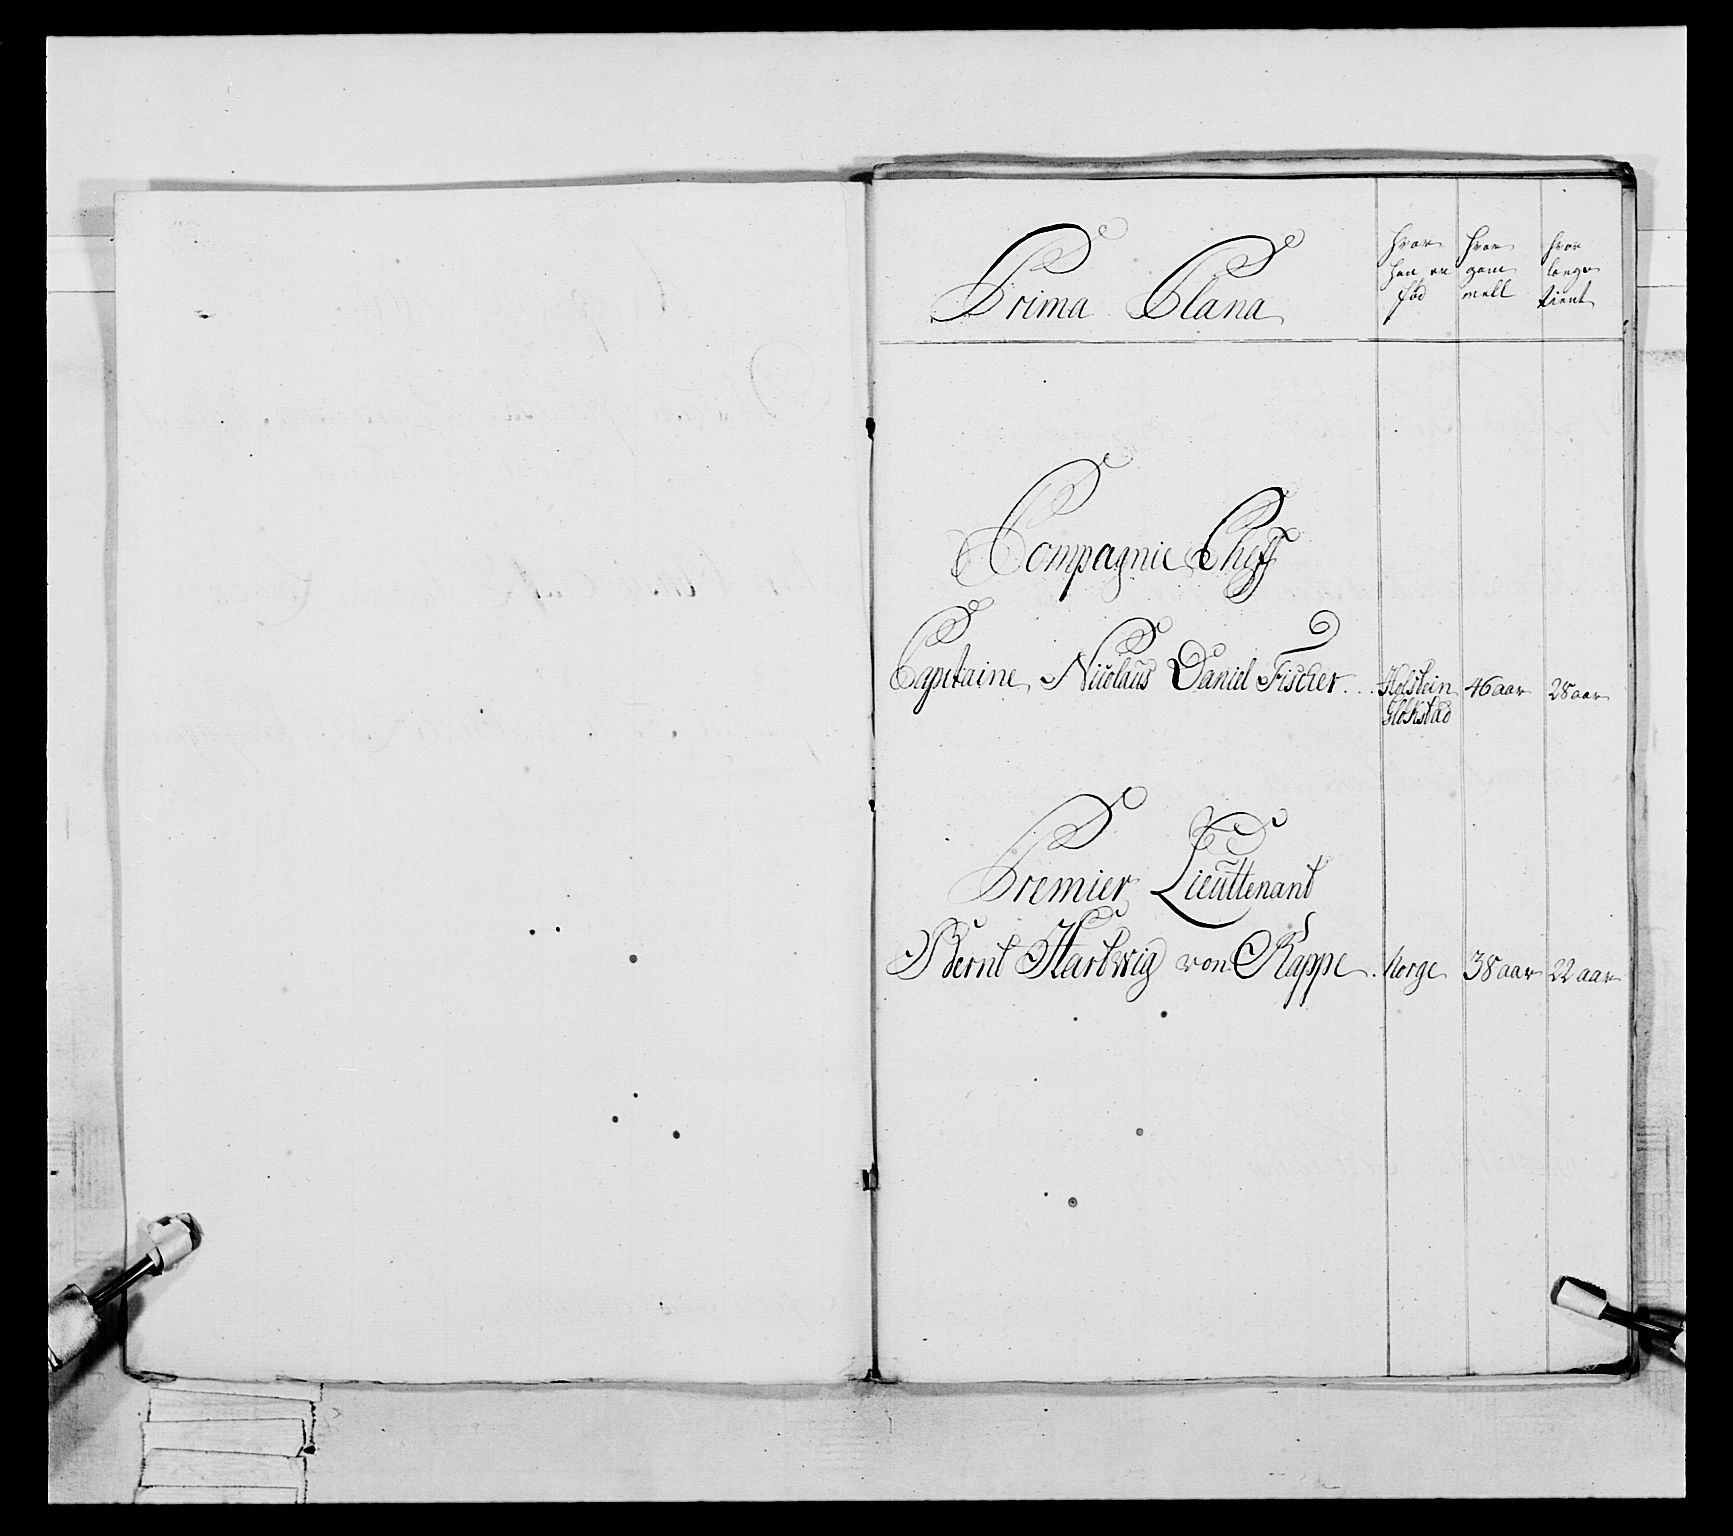 Prima Plana
hvor han er fød
hvor gam mell
hvor lenge tient
Compagnie Cheff
Capitaine Nicolaus Daniel Fischer Holstein 46 aar 28 aar
Glükstad
Premier Lieuttenant
Bernt Hartwig von Kappe Norge 38 aar 22 aar